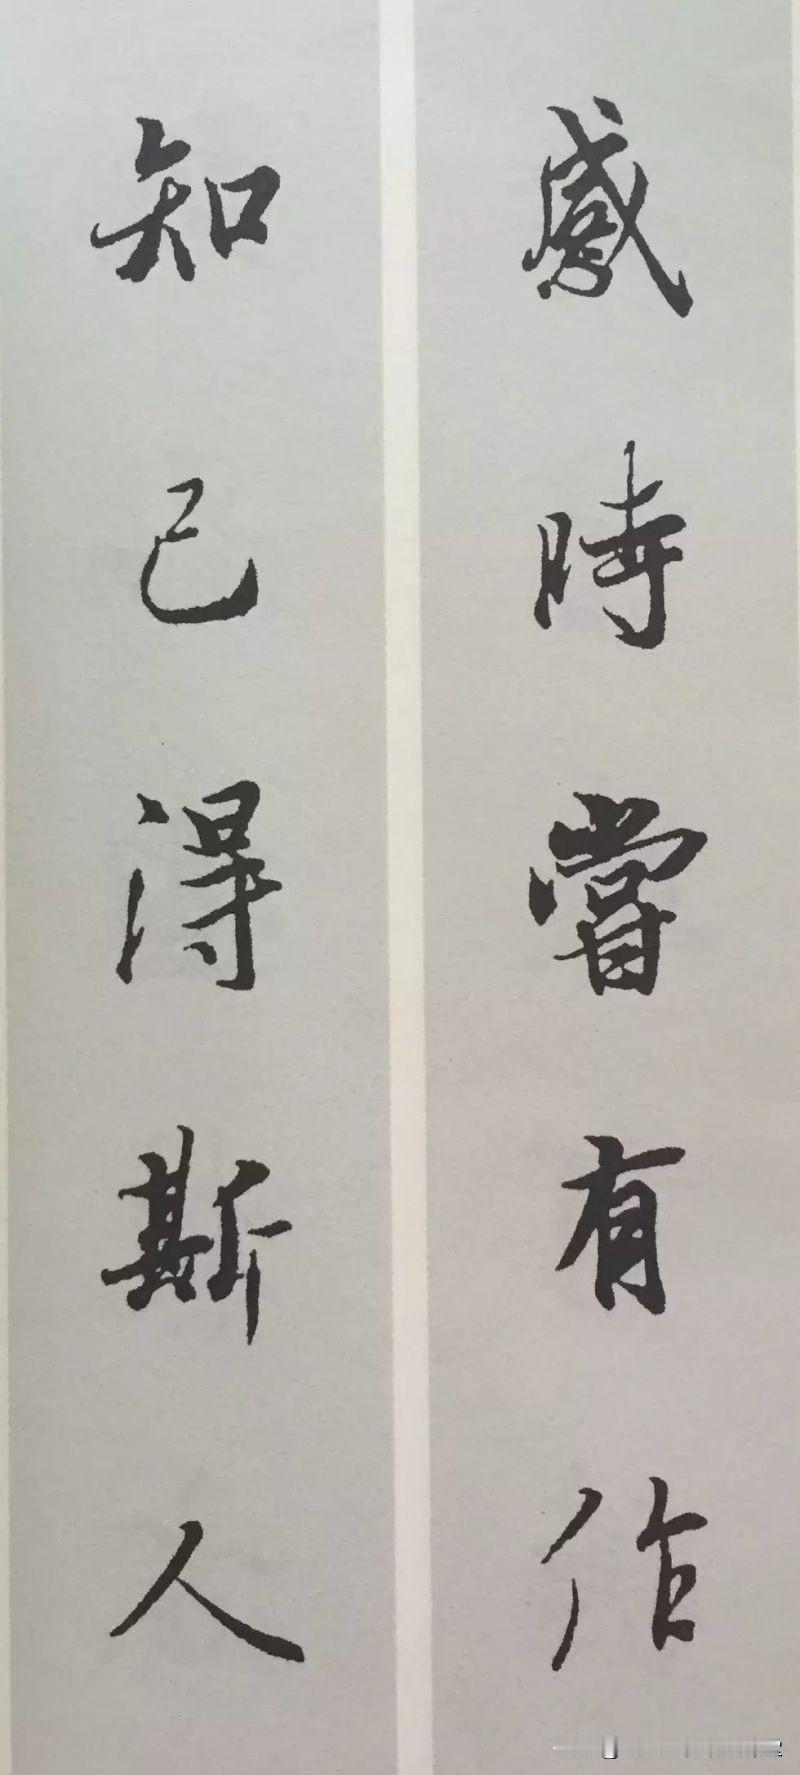 感時嘗有作
知己得斯人